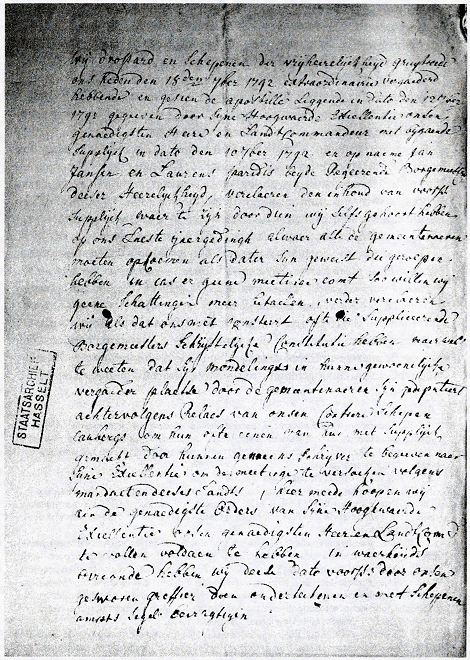 Wij Drossard en Schepenen der vrijheerelijckheyd gruytrode
ons heden den 15den 7ber 1792 extraordinarie vergaderd
hebbende en gesien de apostille liggende in dato den 12 7ber
1792 gegeven door Sijne Hoogwaerde Excellentie onsen
genaedigsten Heere en Landcommandeur met
Supplijck in dato den 10 7ber 1792 en op naeme Jan
Jansen en Laurens paredis beyde Regeerende Borgemeesters
deeser Heerelijckheyd, verclaeren den inhoud van voorss
Supplijck waer te zijn doordien wij selfs gehoort hebben
op ons Leste jaergedingh alwaer alle de gemeentenaeren
moeten opkomen als dater sijn geweest die geroepen
hebben in cas er geene comt soo willen wij
geene Schattingen meer betaelen, verder verclaeren
wij als dat ons niet consteert ofte die Supplieerende
Borgemeesters Schriftelijcke Constitutie hebben maer wel
te weeten dat sij mondelings in hunne gewoonelijcke
vergaeder plaetse door de gemeentenaeren sijn
achtervolgens Relaes van onsen Confrere Schepen
om hun ofte eenen van hun met Supplijck
gemackt door hunnen te begeven naer
Sijne Excellentie om de te versoecken volgens
mandaet deeses Landts, hier mede hoopen wij
aen de genaedigste orders van Sijne Hooghwaerde
Excellentie onsen genaedigsten Heer en Land Comd
te sullen voldaen te hebben in waerheyds
oirconde hebben wij deese dato voorss door onsen
gesworen greffier doen onderteekenen en met Schepenen
amts segel becragtigen
STAATSARCHIEF
HASSELT